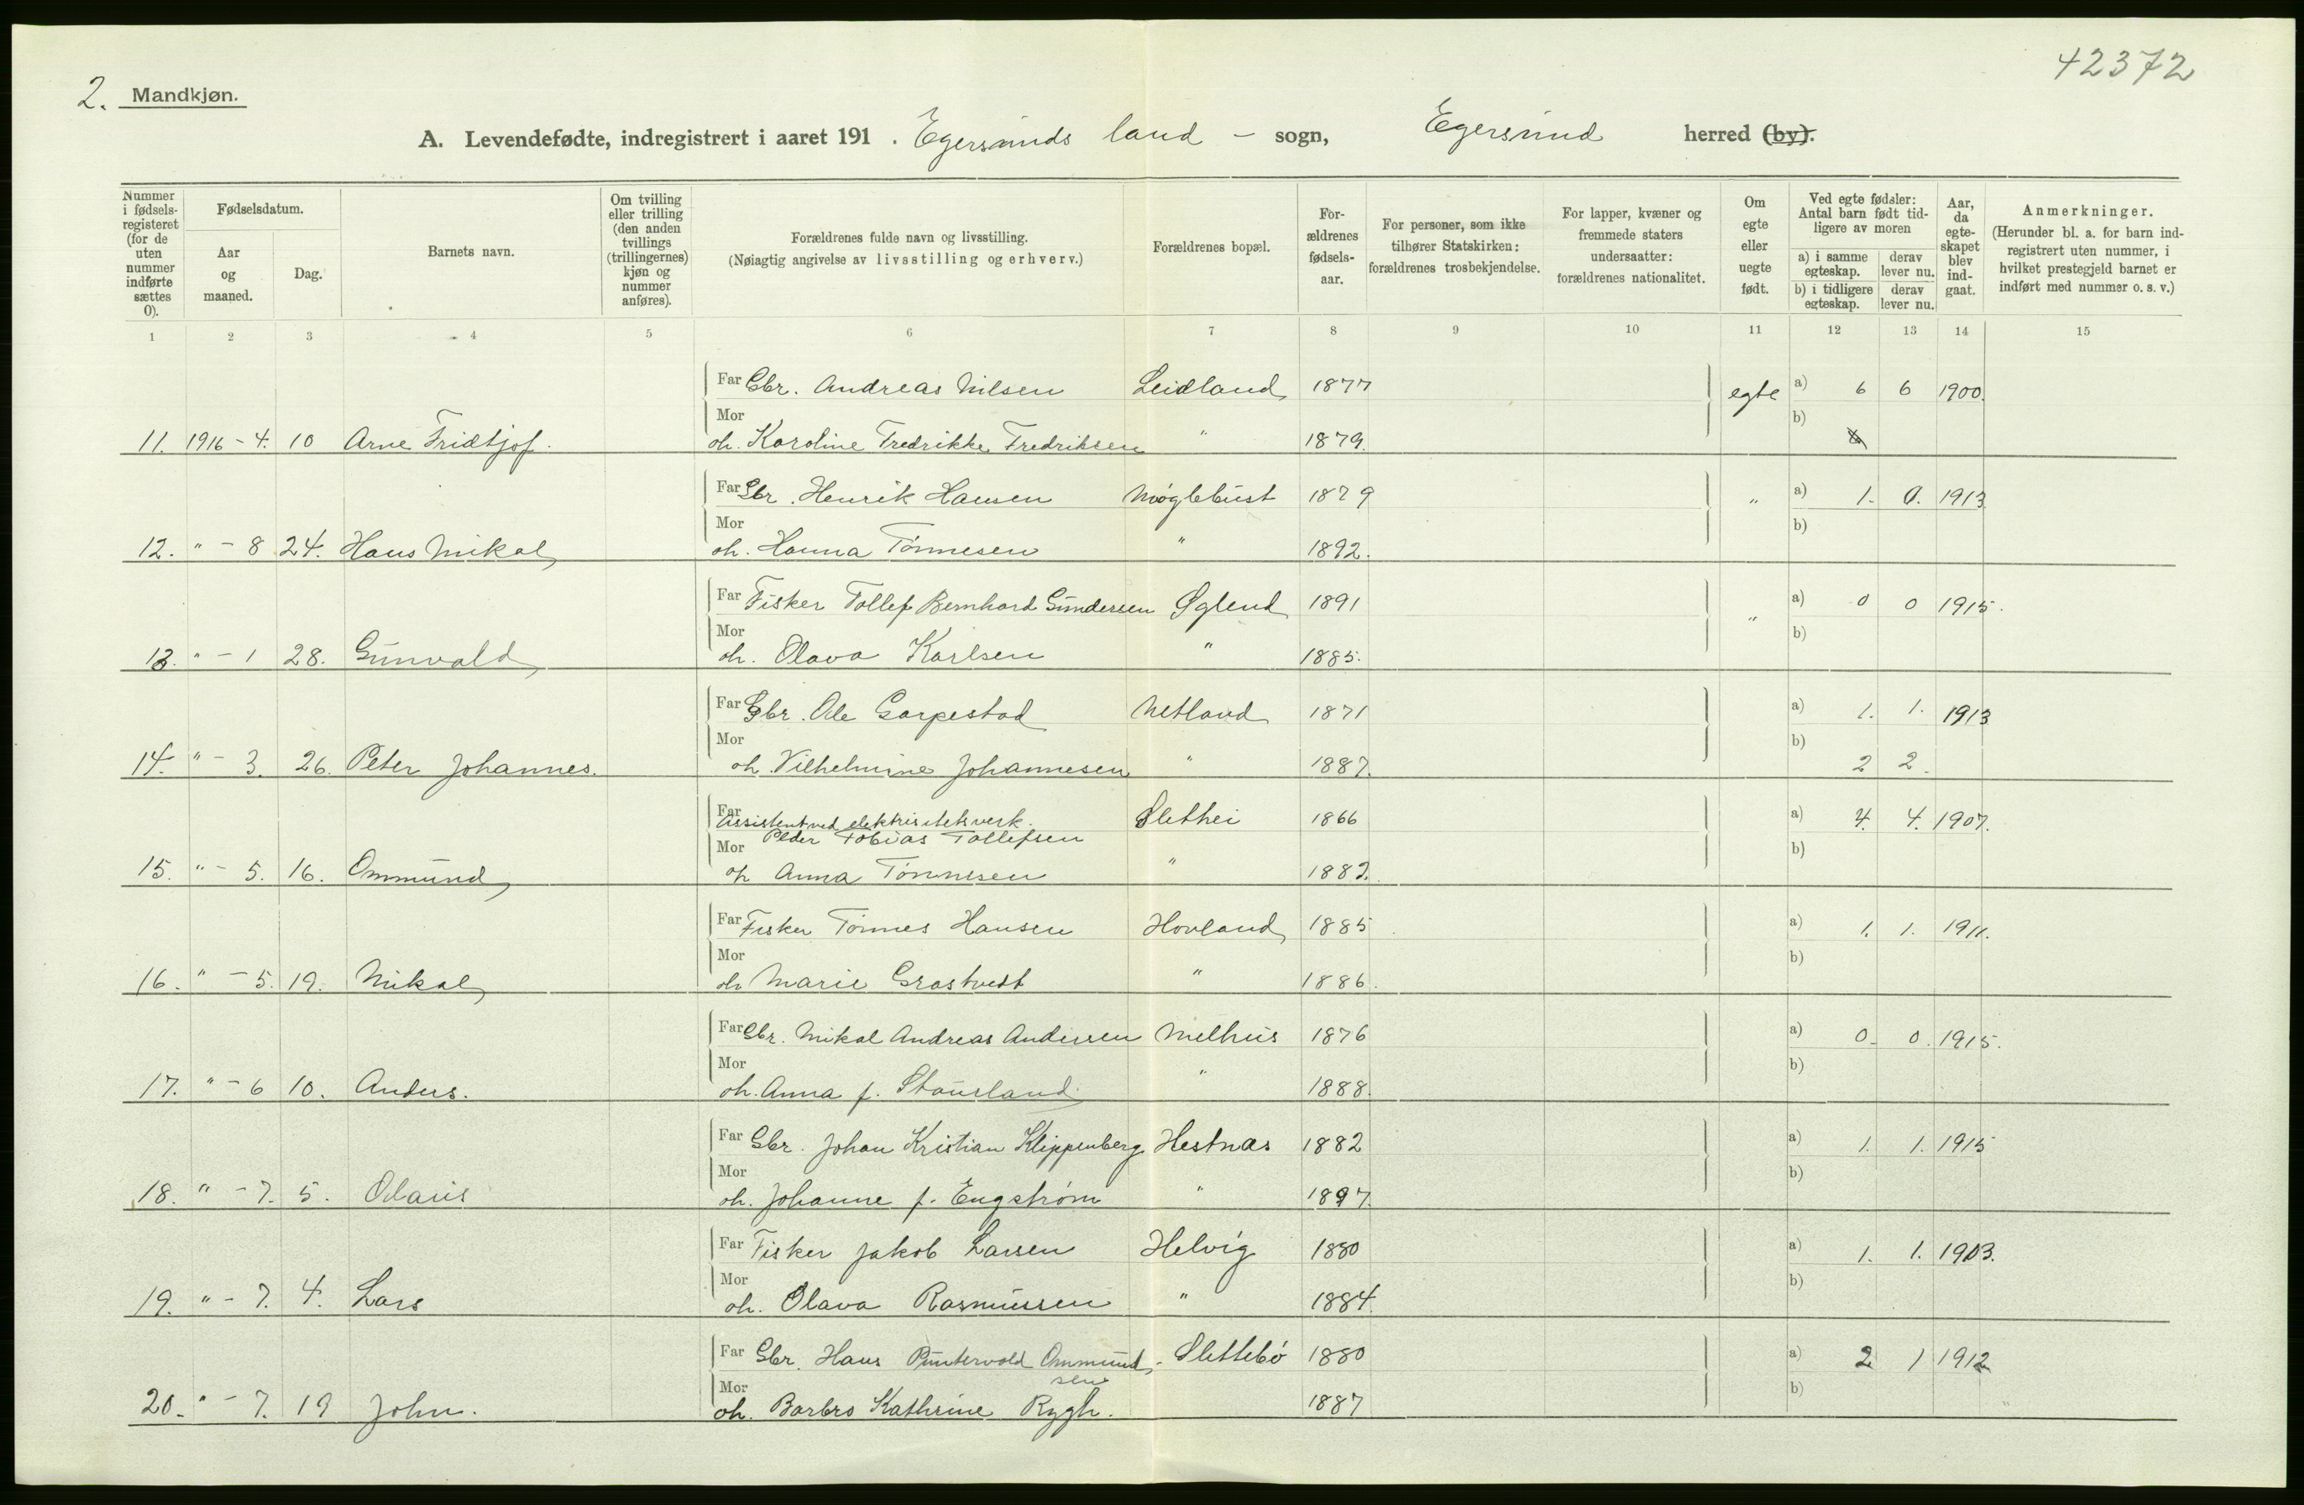 42372
2. Mandkjøn.
A. Levendefødte, indregistrert i aaret 191 . Egersunds land - sogn, Egersund herred (by).
Nummer i fødselsregisteret (for de uten nummer indførte sættes 0). Fødselsdatum. Aar og maaned. Dag. Barnets navn. Om tvilling eller trilling (den anden tvillings (trillingernes) kjøn og nummer anføres). Forældrenes fulde navn og livsstilling. (Nøiagtig angivelse av livsstilling og erhverv.) Forældrenes bopæl. Forældrenes fødselsaar. For personer, som ikke tilhører Statskirken: forældrenes trosbekjendelse. For lapper, kvæner og fremmede staters undersaatter: forældrenes nationalitet. Om egte eller uegte født. Ved egte fødsler: Antal barn født tidligere av moren a) i samme egteskap. derav lever nu. b) i tidligere egteskap. derav lever nu. Aar, da egteskapet blev indgaat. Anmerkninger. (Herunder bl. a. for barn indregistrert uten nummer, i hvilket prestegjeld barnet er indført med nummer o. s. v.)
1 2 3 4 5 6 7 8 9 10 11 12 13 14 15
Far Gbr. Andreas Nilsen Leidland 1877 egte a) 6 6 1900.
11. 1916 - 4. 10 Arne Fridtjof. Mor oh. Karoline Fredrikke Fredriksen " 1879. b)
Far Gbr. Henrik Hansen Møglebust 1879 " a) 1. 0. 1913
12. " - 8 24. Hans Mikal Mor oh. Hanna Tønnesen " 1892. b)
Far Fisker Tollef Bernhard Gundersen Øglend 1891 " a) 0 0 1915.
13. " - 1 28. Gunvald Mor oh. Olava Karlsen " 1885. b)
Far Gbr. Ole Garpestad Netland 1871 a) 1. 1. 1913
14. " - 3. 26. Peter Johannes. Mor oh. Vilhelmine Johannesen " 1887. b) 2 2.
Far Assistent ved elektrisitetsverk. Slethei 1866 a) 4. 4. 1907.
Peder Tobias Tollefsen
15. " - 5. 16. Ommund Mor oh Anna Tønnesen " 1882. b)
Far Fisker Tønnes Hansen Hovland 1885 a) 1. 1. 1911.
16. " - 5. 19. Mikal Mor oh Marie Grastveit " 1886. b)
Far Gbr. Mikal Andreas Andersen Melhus 1876 a) 0. 0. 1915.
17. " - 6 10. Anders. Mor oh. Anna f. Stausland " 1888. b)
Far Gbr. Johan Kristian Klippenberg Hestnas 1882 a) 1. 1. 1915
18. " - 7. 5. Olaus Mor oh. Johanne f. Engstrøm " 1897. b)
Far Fisker Jakob Larsen Helvig 1880 a) 1. 1. 1903.
19. " - 7. 4. Lars Mor oh. Olava Rasmussen " 1884. b)
Far Gbr. Hans Puntervold Ommund- Slettebø 1880 a) 2 1 1912
sen
20. " - 7. 19 John. Mor oh. Barbro Kathrine Rygh. 1887 b)